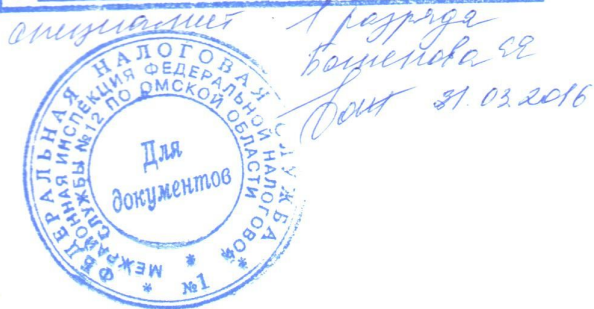 специалист 1 разряда
Баженова ЕЯ
31.03.2016
ФЕДЕРАЛЬНАЯ НАЛОГОВАЯ СЛУЖБА
МЕЖРАЙОННАЯ ИНСПЕКЦИЯ ФЕДЕРАЛЬНОЙ НАЛОГОВОЙ
СЛУЖБЫ №12 ПО ОМСКОЙ ОБЛАСТИ
Для
документов
* №1 *